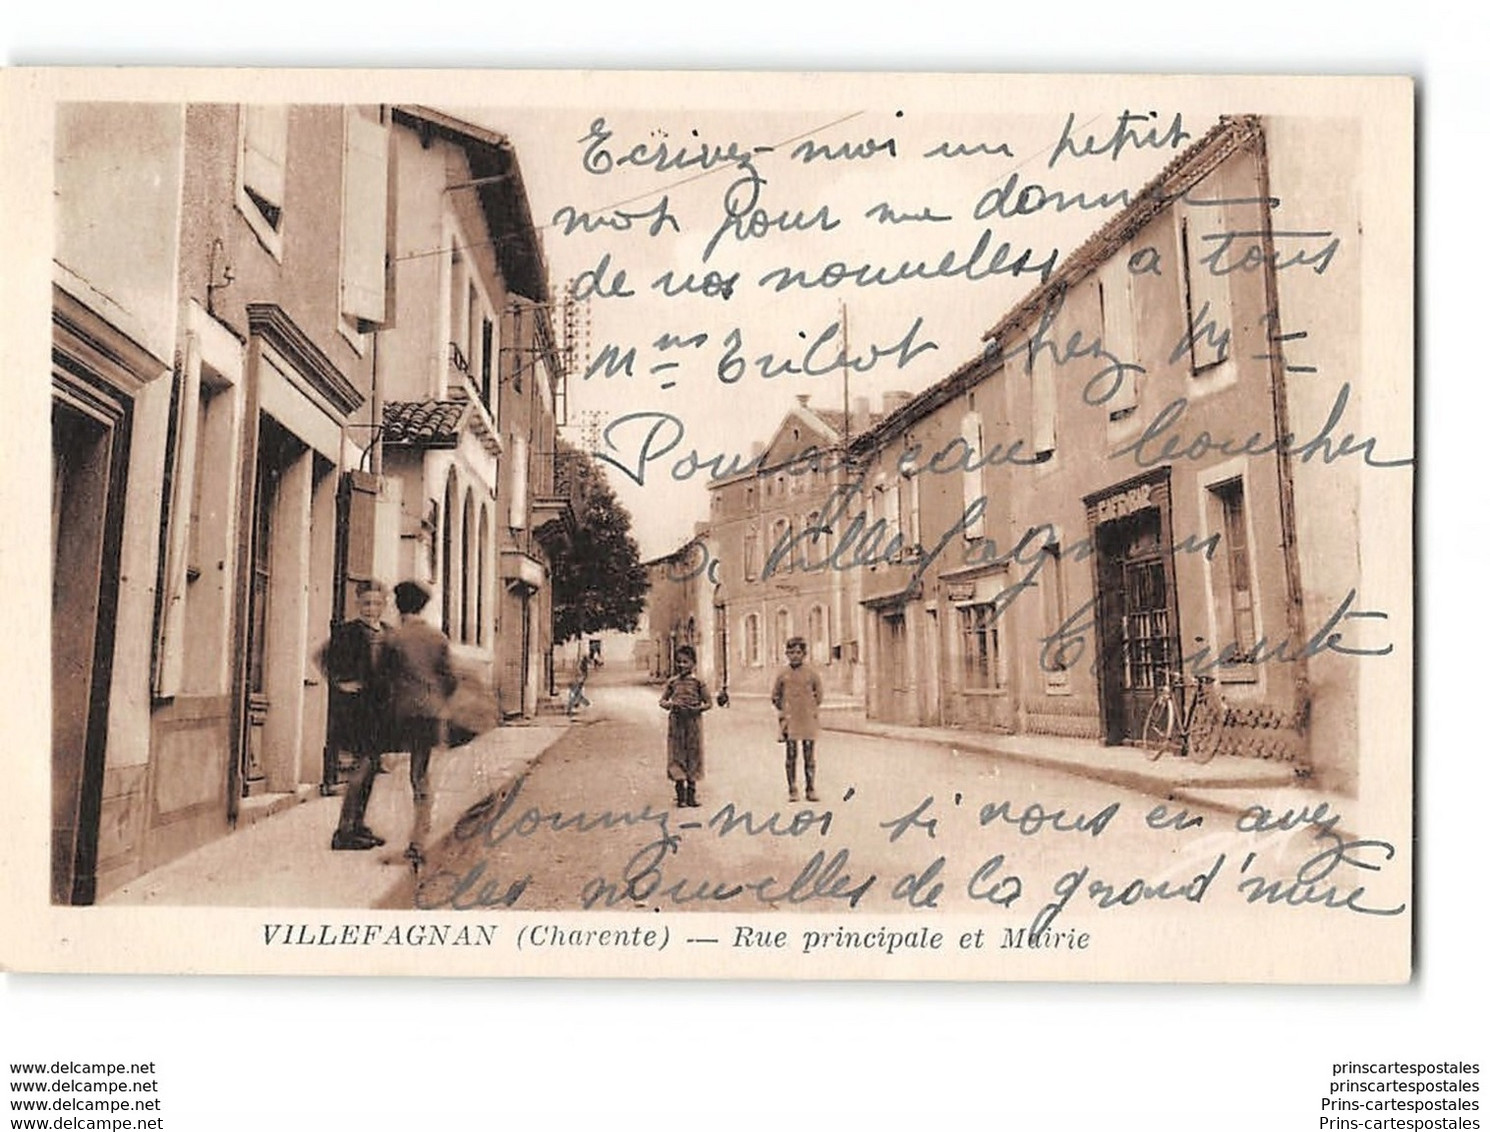 Ecrivez-moi un petit
mot pour me donner
de vos nouvelles a tous
Mme Tribot chez Mr
Poujeau boucher
a Villefagnan
Charente
donnez-moi si vous en avez
des nouvelles de la grand'mère
VILLEFAGNAN (Charente) — Rue principale et Mairie
www.delcampe.net
www.delcampe.net
www.delcampe.net
www.delcampe.net
prinscartespostales
prinscartespostales
Prins-cartespostales
Prins-cartespostales